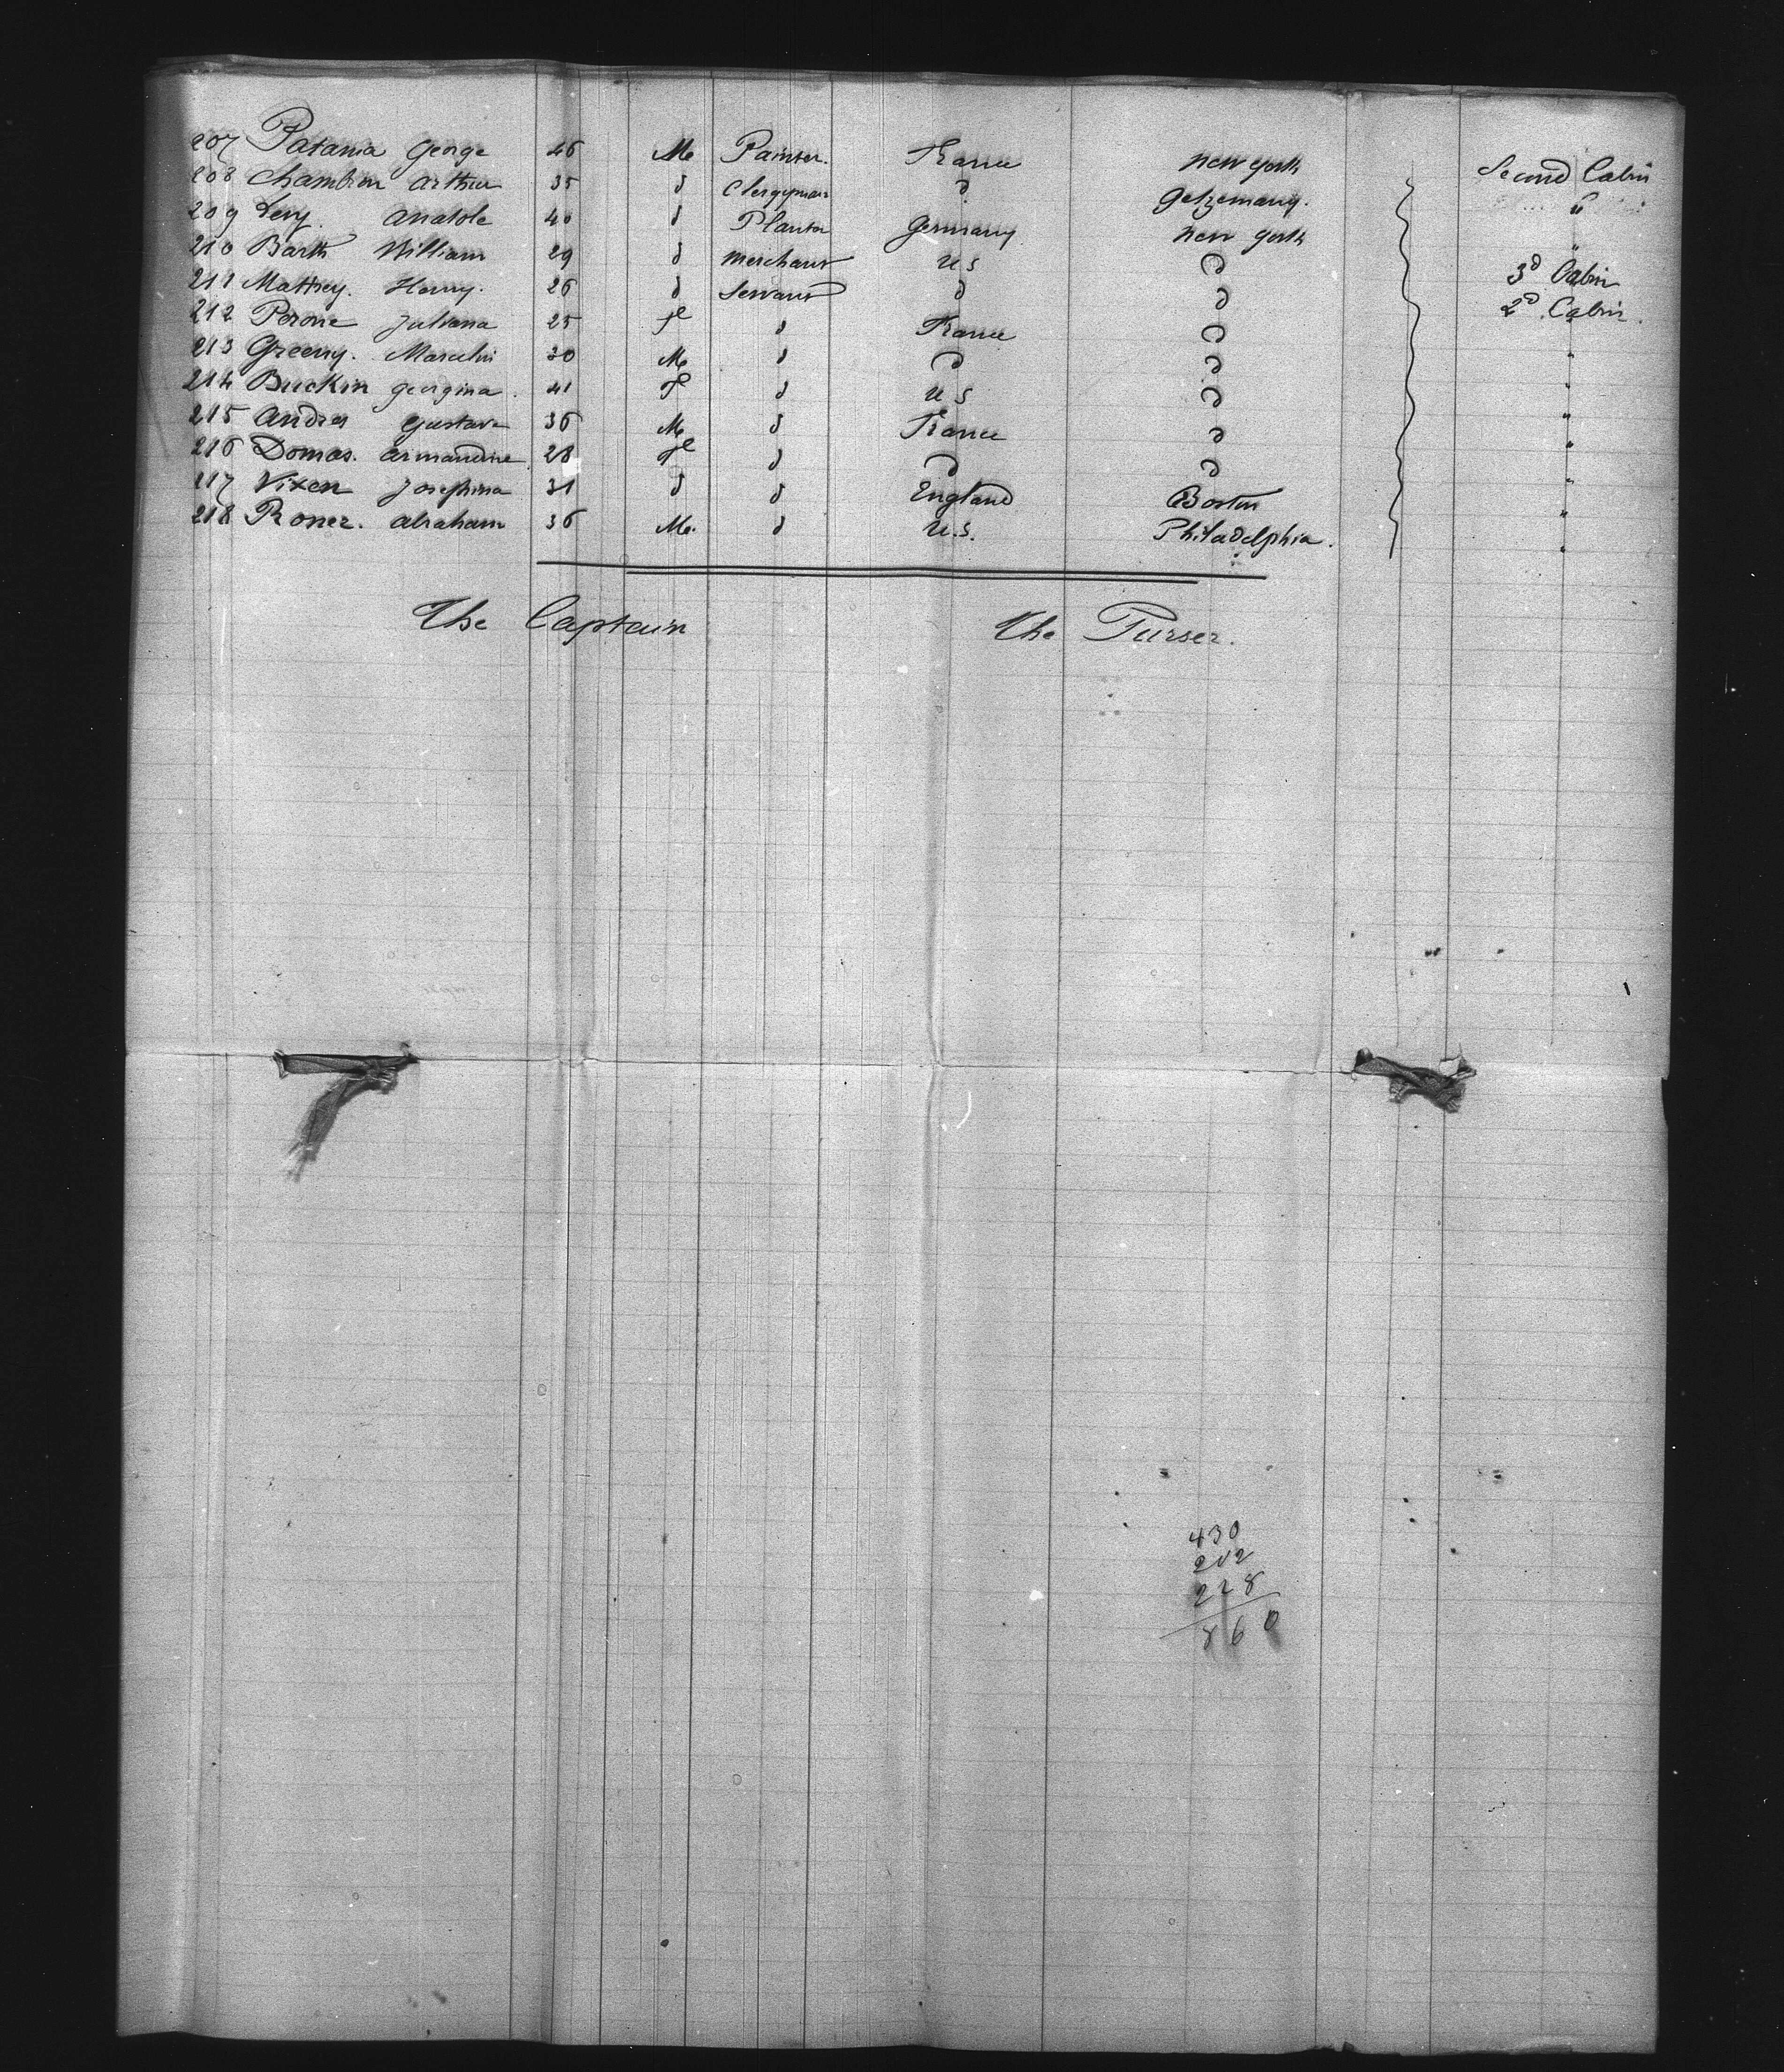 207 Patania George 46 M Painter. France New York Second Cabin
208 Chambon Arthur 35 d Clergyman d Getzemany. "
209 Levy. Anatole 40 d Planter Germany New York "
210 Barth William 29 d Merchant U S d 3d Cabin
211 Matthey. Henry. 26 d Servant d d 2d Cabin.
212 Perone Juliana 25 fl d France d "
213 Greeny. Marcelin 30 M d d d "
214 Buckin Georgina. 41 fl d U S d "
215 Andres Gustave 36 M d France d "
216 Domas. Armandine 28 fl d d d "
117 Vixen Josephina 31 d d England Boston "
218 Roner. Abraham 36 M. d U.S. Philadelphia. "
The Captain The Purser.
430
202
228
860